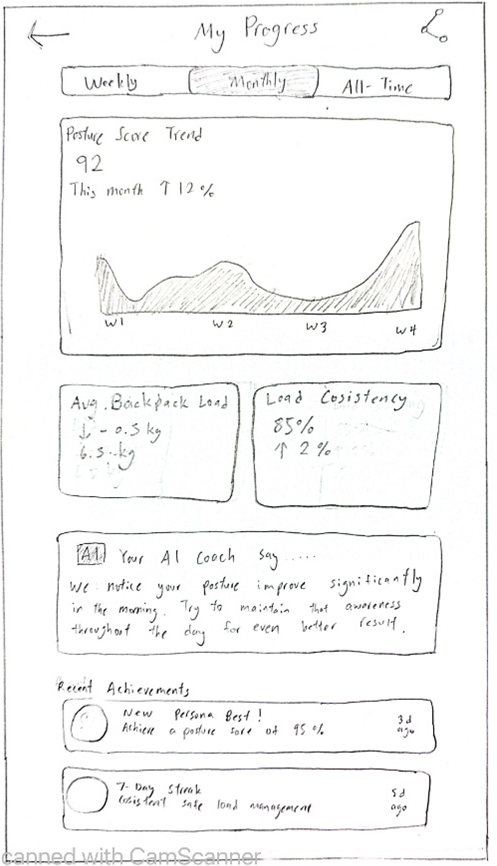 My Progress
Weekly Monthly All-Time
Posture Score Trend
92
This month ↑ 12%
W1 W2 W3 W4
Avg. Backpack Load
↓ - 0.5 kg
6.5 kg
Load Cosistency
85%
↑ 2%
AI Your AI Coach Say .....
We notice your posture improve significantly
in the morning. Try to maintain that awareness
throughout the day for even better result.
Recent Achievements
New Persona Best!
Achieve a posture sore of 95%
3d
ago
7-Day Streak
Cosistent safe load management
5d
ago
canned with CamScanner